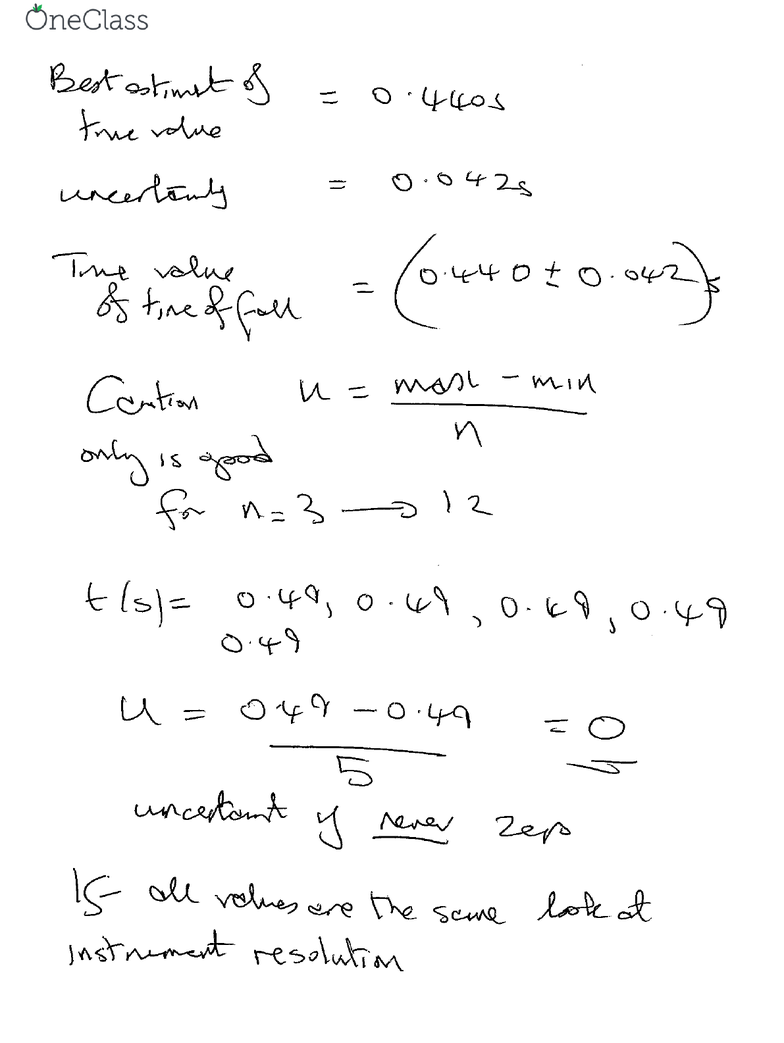 OneClass
Best estimat of = 0.440s
true value
uncertainty = 0.042s
True value
of time of fall = (0.440 ± 0.042)s
Caution u = max - min
n
only is good
for n = 3 → 12
t(s) = 0.49, 0.49, 0.49, 0.49
0.49
u = 0.49 - 0.49 = 0
5
uncertaint y never zero
If all values are the same look at
instrument resolution